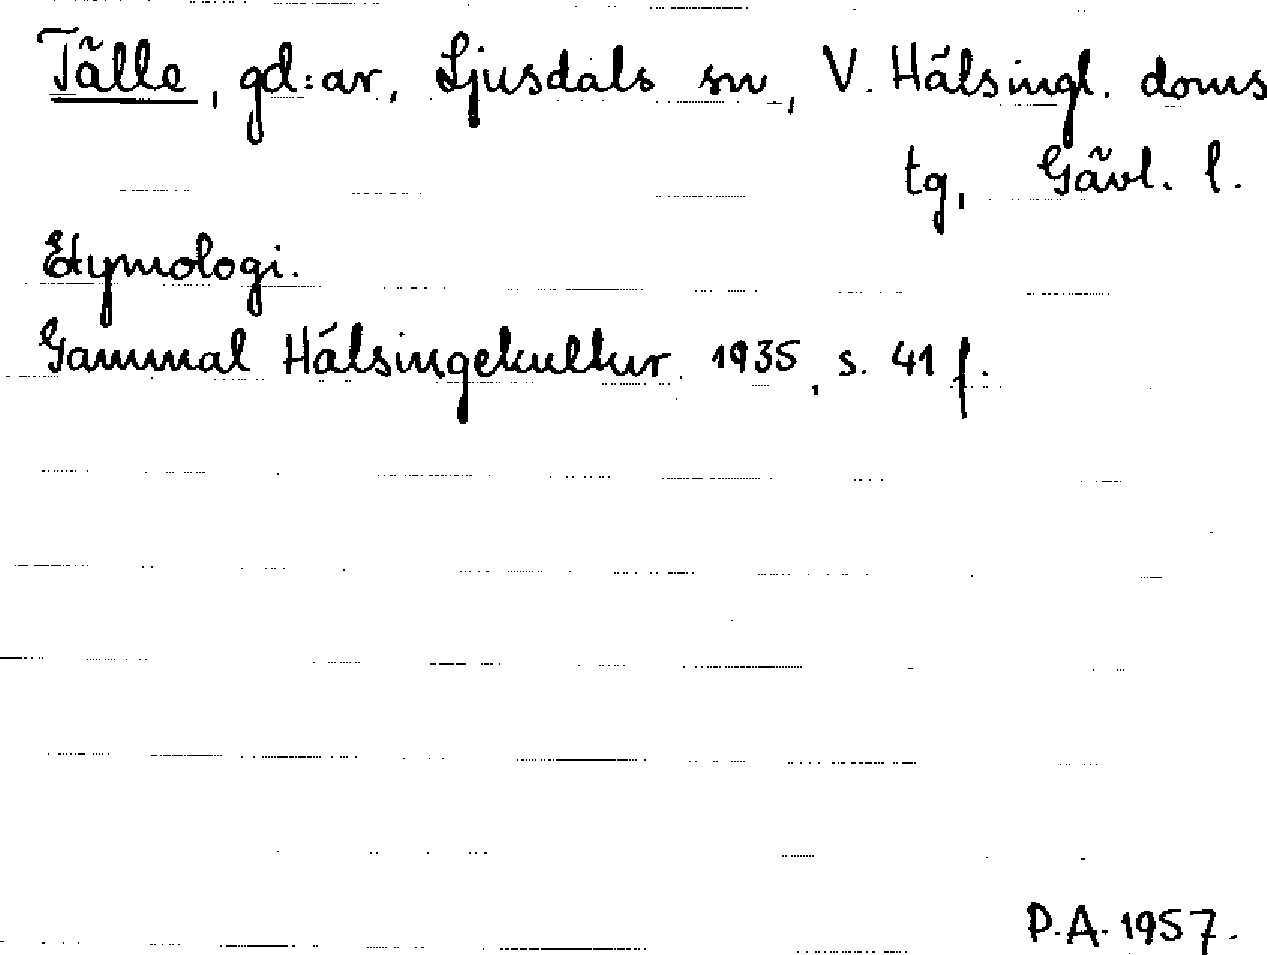 Tälle, gd:ar, Ljusdals sn, V. Hälsingl. doms
tg, Gävl. l.
Etymologi.
Gammal Hälsingekultur 1935, s. 41 f.
P.A. 1957.